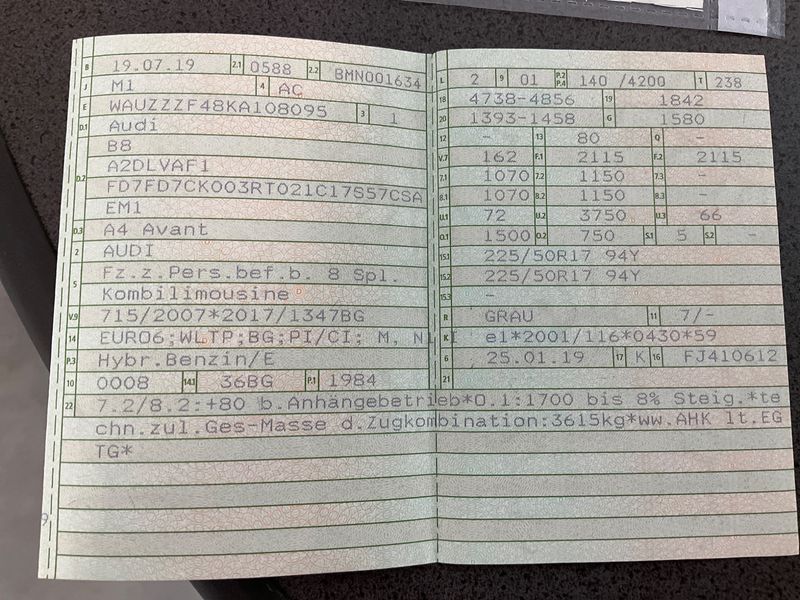 B 19.07.19 2.1 0588 2.2 BMN001634
J M1 4 AC
E WAUZZZF48KA108095 3 1
D.1 Audi
B8
D.2 A2DLVAF1
FD7FD7CK003RT021C17S57CSA
EM1
D.3 A4 Avant
2 AUDI
5 Fz.z.Pers.bef.b. 8 Spl.
Kombilimousine
V.9 715/2007*2017/1347BG
14 EURO6;WLTP;BG;PI/CI; M, N1 I
P.3 Hybr.Benzin/E
10 0008 14.1 36BG P.1 1984
L 2 9 01 P.2 P.4 140 /4200 T 238
18 4738-4856 19 1842
20 1393-1458 G 1580
12 - 13 80 Q -
V.7 162 F.1 2115 F.2 2115
7.1 1070 7.2 1150 7.3 -
8.1 1070 8.2 1150 8.3 -
U.1 72 U.2 3750 U.3 66
O.1 1500 O.2 750 S.1 5 S.2 -
15.1 225/50R17 94Y
15.2 225/50R17 94Y
15.3 -
R GRAU 11 7/-
K e1*2001/116*0430*59
6 25.01.19 17 K 16 FJ410612
21
22 7.2/8.2:+80 b.Anhängebetrieb*O.1:1700 bis 8% Steig.*te
chn.zul.Ges-Masse d.Zugkombination:3615kg*ww.AHK lt.EG
TG*